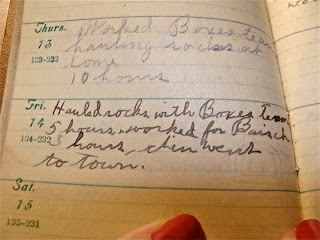 Thurs.
13
133-233
Worked Boxes team
hauling rocks at
home
10 hours
Fri.
14
134-232
Hauled rocks with Boxes team
5 hours, worked for
5 hours, then went
to town.
Sat.
15
135-231